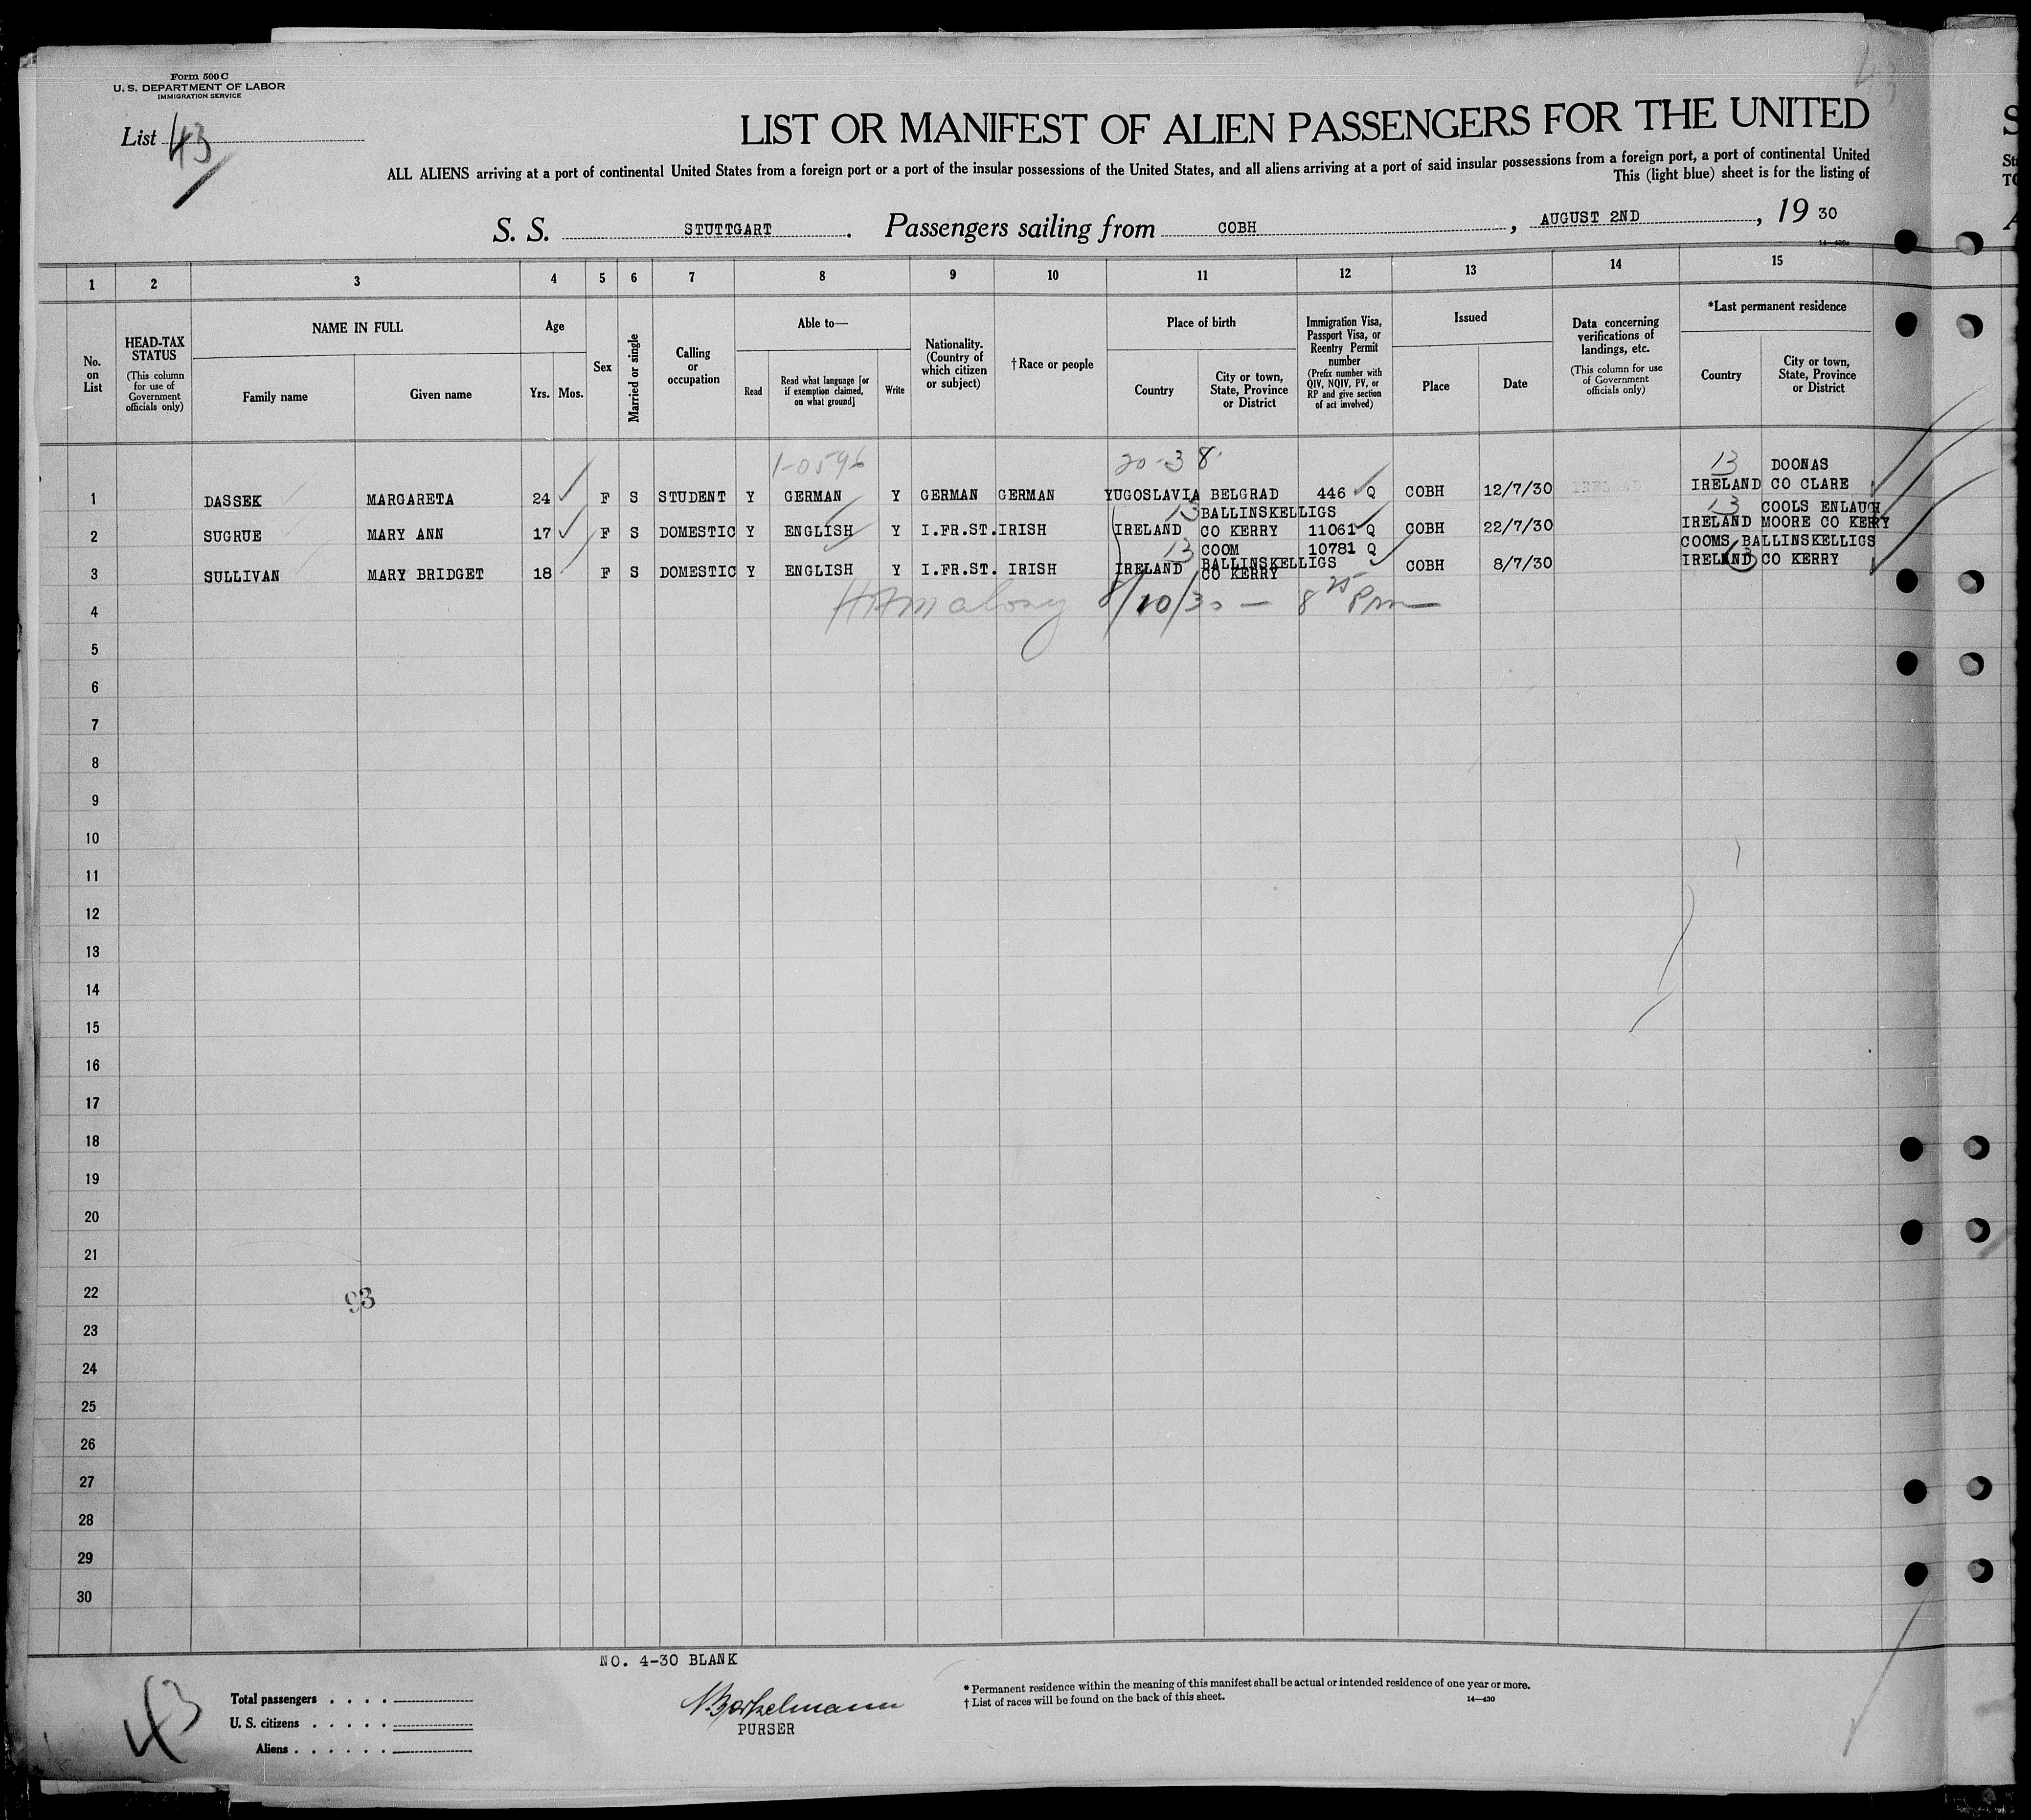 Form 500 C
U. S. DEPARTMENT OF LABOR
IMMIGRATION SERVICE
List 43
43
LIST OR MANIFEST OF ALIEN PASSENGERS FOR THE UNITED
ALL ALIENS arriving at a port of continental United States from a foreign port or a port of the insular possessions of the United States, and all aliens arriving at a port of said insular possessions from a foreign port, a port of continental United
This (light blue) sheet is for the listing of
S. S. STUTTGART. Passengers sailing from COBH, AUGUST 2ND, 19 30
1 2 3 4 5 6 7 8 9 10 11 12 13 14 15
No. on List
HEAD-TAX STATUS (This column for use of Government officials only)
NAME IN FULL
Family name Given name
Age
Yrs. Mos.
Sex
Married or single
Calling or occupation
Able to—
Read
Read what language [or if exemption claimed, on what ground]
Write
Nationality. (Country of which citizen or subject)
†Race or people
Place of birth
Country
City or town, State, Province or District
Immigration Visa, Passport Visa, or Reentry Permit number (Prefix number with QIV, NQIV, PV, or RP and give section of act involved)
Issued
Place Date
Data concerning verifications of landings, etc. (This column for use of Government officials only)
*Last permanent residence
Country
City or town, State, Province or District
1-0596 20-38 13 DOONAS
1 DASSEK MARGARETA 24 F S STUDENT Y GERMAN Y GERMAN GERMAN YUGOSLAVIA BELGRAD 446 Q COBH 12/7/30 IRELAND IRELAND CO CLARE
13 BALLINSKELLIGS 13 COOLS ENLAUGH
2 SUGRUE MARY ANN 17 F S DOMESTIC Y ENGLISH Y I.FR.ST. IRISH IRELAND CO KERRY 11061 Q COBH 22/7/30 IRELAND MOORE CO KERY
13 COOM 10781 Q COOMS BALLINSKELLIGS
3 SULLIVAN MARY BRIDGET 18 F S DOMESTIC Y ENGLISH Y I.FR.ST. IRISH IRELAND BALLINSKELLIGS COBH 8/7/30 IRELAND 13 CO KERRY
CO KERRY
4 8/10/30 — 8 25 Pm
5
6
7
8
9
10
11
12
13
14
15
16
17
18
19
20
21
22
93
23
24
25
26
27
28
29
30
NO. 4-30 BLANK
43
Total passengers
U. S. citizens
Aliens
PURSER
* Permanent residence within the meaning of this manifest shall be actual or intended residence of one year or more.
† List of races will be found on the back of this sheet.
14—430